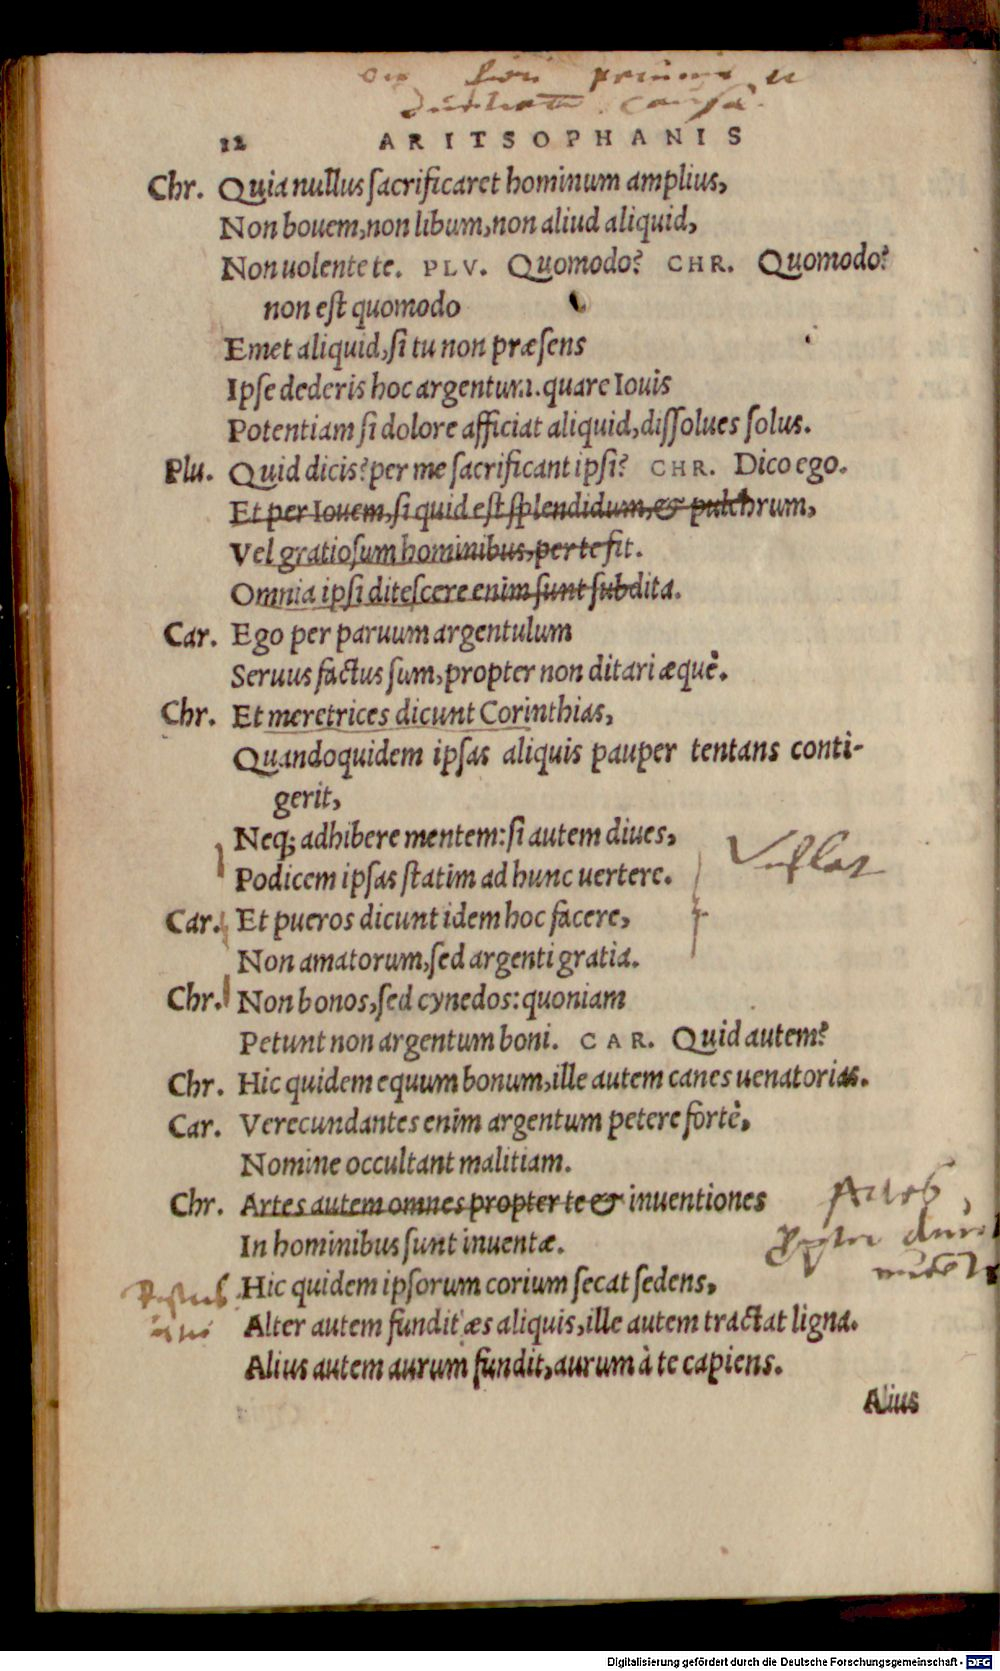 causa.
12 ARITSOPHANIS
Chr. Quia nullus sacrificaret hominum amplius,
Non bouem, non libum, non aliud aliquid,
Non uolente te. PLV. Quomodo? CHR. Quomodo?
non est quomodo
Emet aliquid, si tu non præsens
Ipse dederis hoc argentum. quare Iouis
Potentiam si dolore afficiat aliquid, dissolues solus.
Plu. Quid dicis? per me sacrificant ipsi? CHR. Dico ego.
Et per Iouem, si quid est splendidum, & pulchrum,
Vel gratiosum hominibus, per te fit.
Omnia ipsi ditescere enim sunt subdita.
Car. Ego per paruum argentulum
Seruus factus sum, propter non ditari æquè.
Chr. Et meretrices dicunt Corinthias,
Quandoquidem ipsas aliquis pauper tentans conti-
gerit,
Neq; adhibere mentem: si autem diues,
Podicem ipsas statim ad hunc uertere.
Car. Et pueros dicunt idem hoc facere,
Non amatorum, sed argenti gratia.
Chr. Non bonos, sed cynedos: quoniam
Petunt non argentum boni. CAR. Quid autem?
Chr. Hic quidem equum bonum, ille autem canes uenatorias.
Car. Verecundantes enim argentum petere fortè,
Nomine occultant malitiam.
Chr. Artes autem omnes propter te & inuentiones
In hominibus sunt inuentæ.
Hic quidem ipsorum corium secat sedens,
Alter autem fundit æs aliquis, ille autem tractat ligna.
Alius autem aurum fundit, aurum à te capiens.
Alius
Digitalisierung gefördert durch die Deutsche Forschungsgemeinschaft - DFG